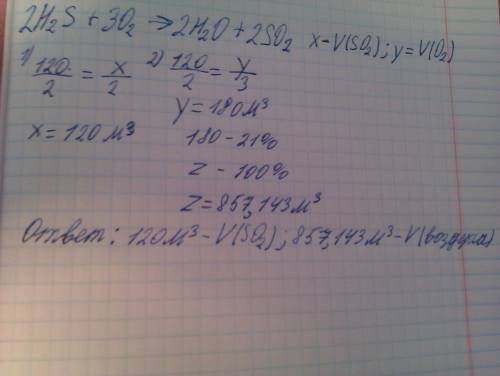 2H₂S + 3O₂ → 2H₂O + 2SO₂ x - V(SO₂); y = V(O₂)
1) 120/2 = x/2 2) 120/2 = y/3
y = 180 м³
x = 120 м³ 180 - 21%
z - 100%
z = 857,143 м³
Ответ: 120 м³ - V(SO₂); 857,143 м³ - V(воздуха)